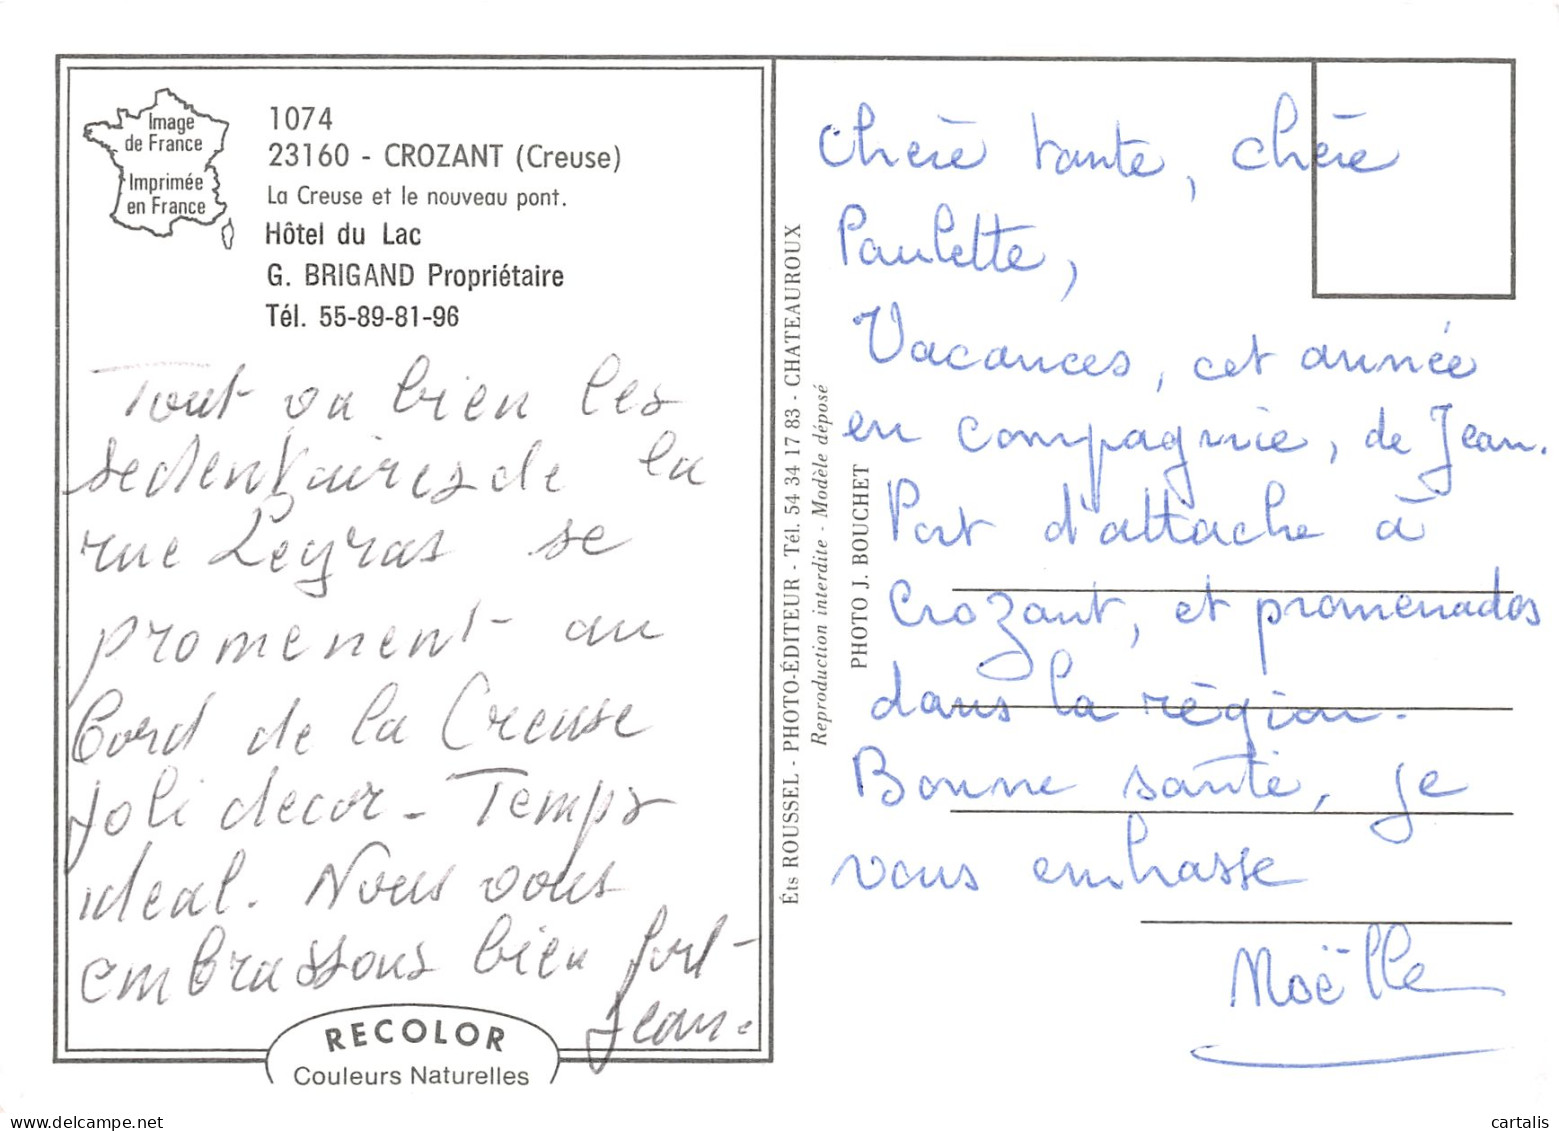 Image
de France
Imprimée
en France
1074
23160 - CROZANT (Creuse)
La Creuse et le nouveau pont.
Hôtel du Lac
G. BRIGAND Propriétaire
Tél. 55-89-81-96
Tout va bien les
sedentaires de la
rue Legras se
promenent au
bord de la Creuse
joli decor - Temps
ideal. Nous vous
embrassons bien fort
Jean.
RECOLOR
Couleurs Naturelles
Éts ROUSSEL - PHOTO-ÉDITEUR - Tél. 54 34 17 83 - CHATEAUROUX
Reproduction interdite - Modèle déposé
PHOTO J. BOUCHET
Chère tante, chère
Paulette,
Vacances, cet année
en compagnie, de Jean.
Port d'attache à
Crozant, et promenades
dans la région.
Bonne santé, je
vous embrasse
Noëlle
cartalis
www.delcampe.net